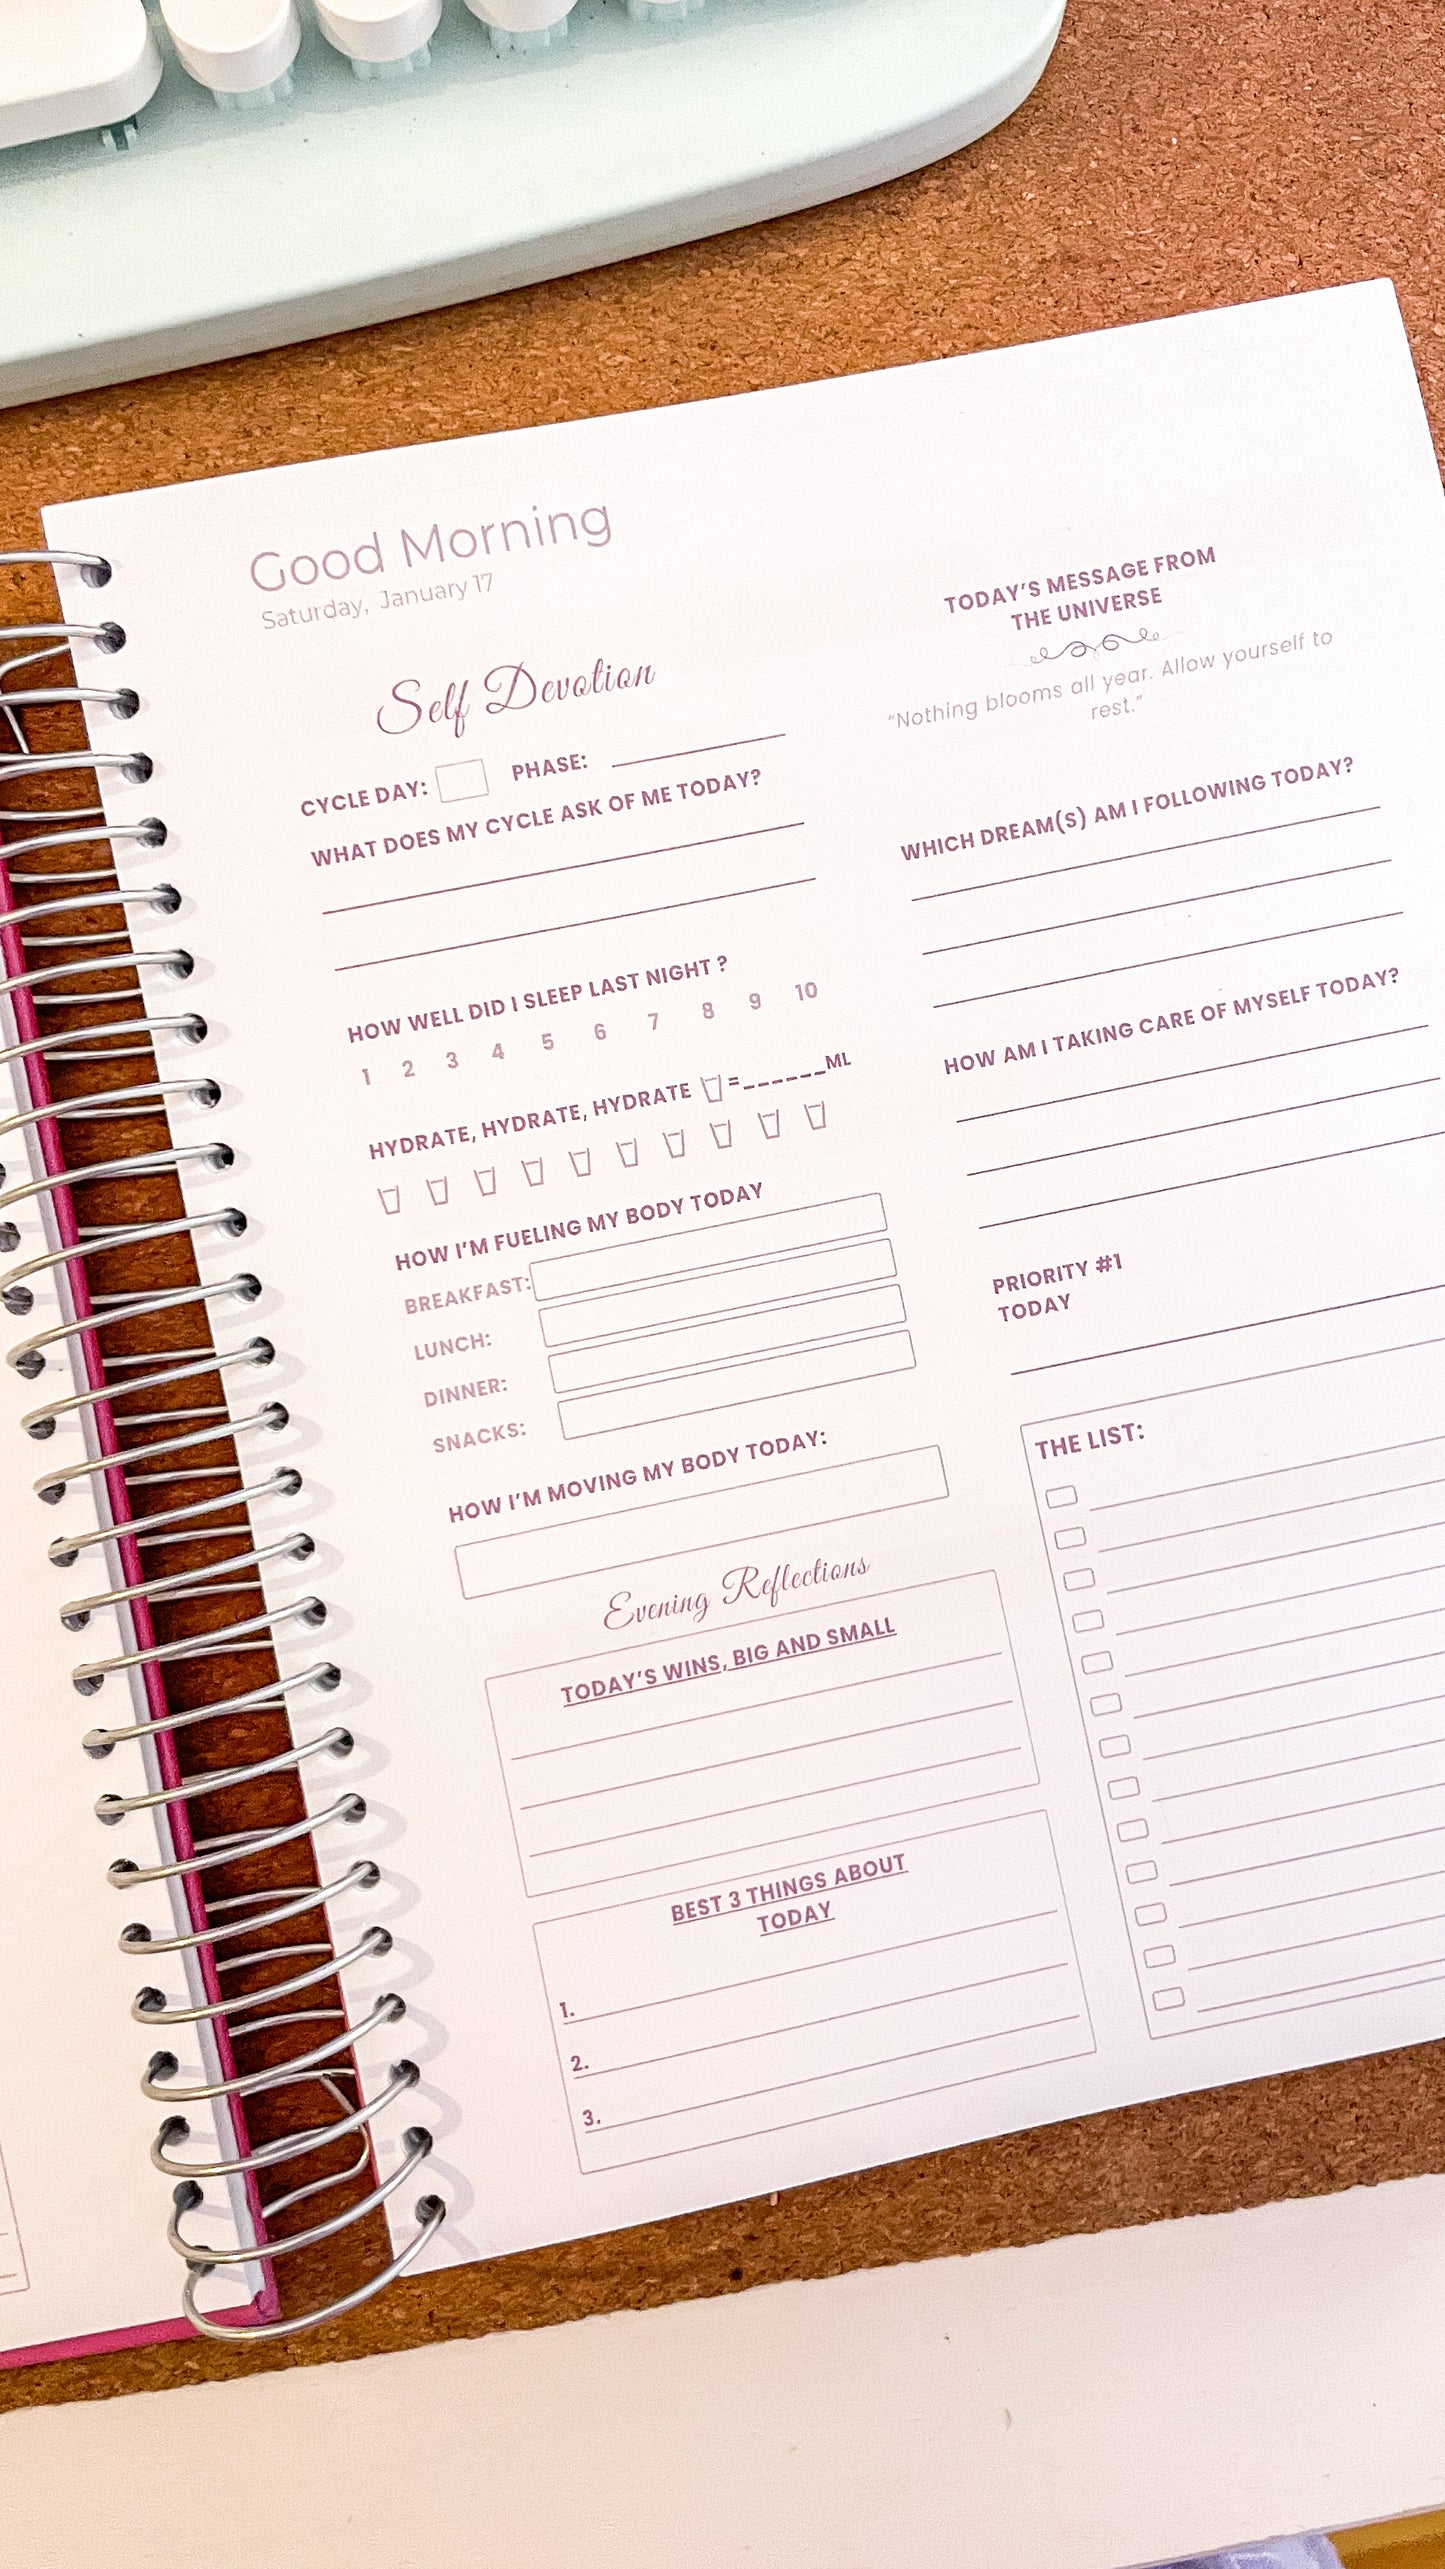 Good Morning
Saturday, January 17
Self Devotion
CYCLE DAY:
PHASE:
WHAT DOES MY CYCLE ASK OF ME TODAY?
HOW WELL DID I SLEEP LAST NIGHT ?
1 2 3 4 5 6 7 8 9 10
HYDRATE, HYDRATE, HYDRATE =______ML
HOW I'M FUELING MY BODY TODAY
BREAKFAST:
LUNCH:
DINNER:
SNACKS:
HOW I'M MOVING MY BODY TODAY:
Evening Reflections
TODAY'S WINS, BIG AND SMALL
BEST 3 THINGS ABOUT
TODAY
1.
2.
3.
TODAY'S MESSAGE FROM
THE UNIVERSE
"Nothing blooms all year. Allow yourself to
rest."
WHICH DREAM(S) AM I FOLLOWING TODAY?
HOW AM I TAKING CARE OF MYSELF TODAY?
PRIORITY #1
TODAY
THE LIST: